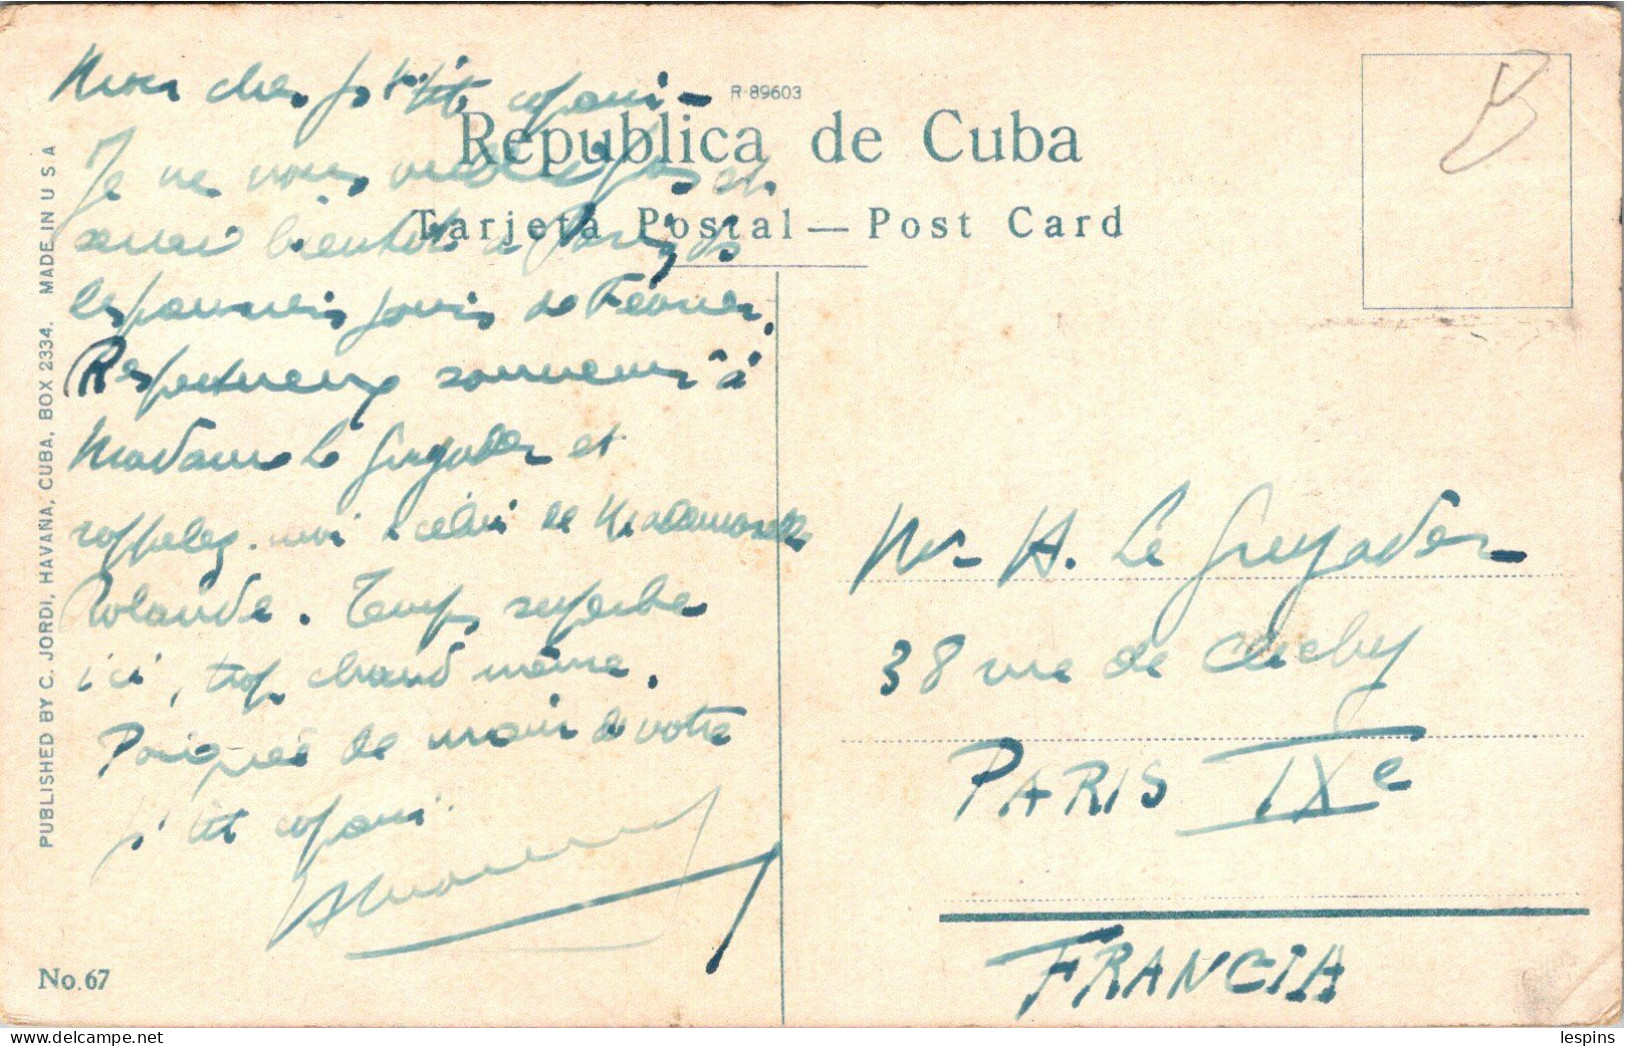 Mon cher p'tit copain -
Je ne vous oublie pas et
serai bientôt à Paris, ds
les premiers jours de Février.
Respectueux souvenir à
Madame Le Gregader et
rappelez-moi à celui de Mademoiselle
Rolande. Temps superbe
ici, trop chaud même.
Poignée de main de votre
p'tit copain
R-89603
Republica de Cuba
Tarjeta Postal — Post Card
PUBLISHED BY C. JORDI, HAVAÑA, CUBA, BOX 2334. MADE IN U S A
No. 67
Mr H. Le Gregader
38 rue de Clichy
PARIS IXe
FRANCIA
lespins